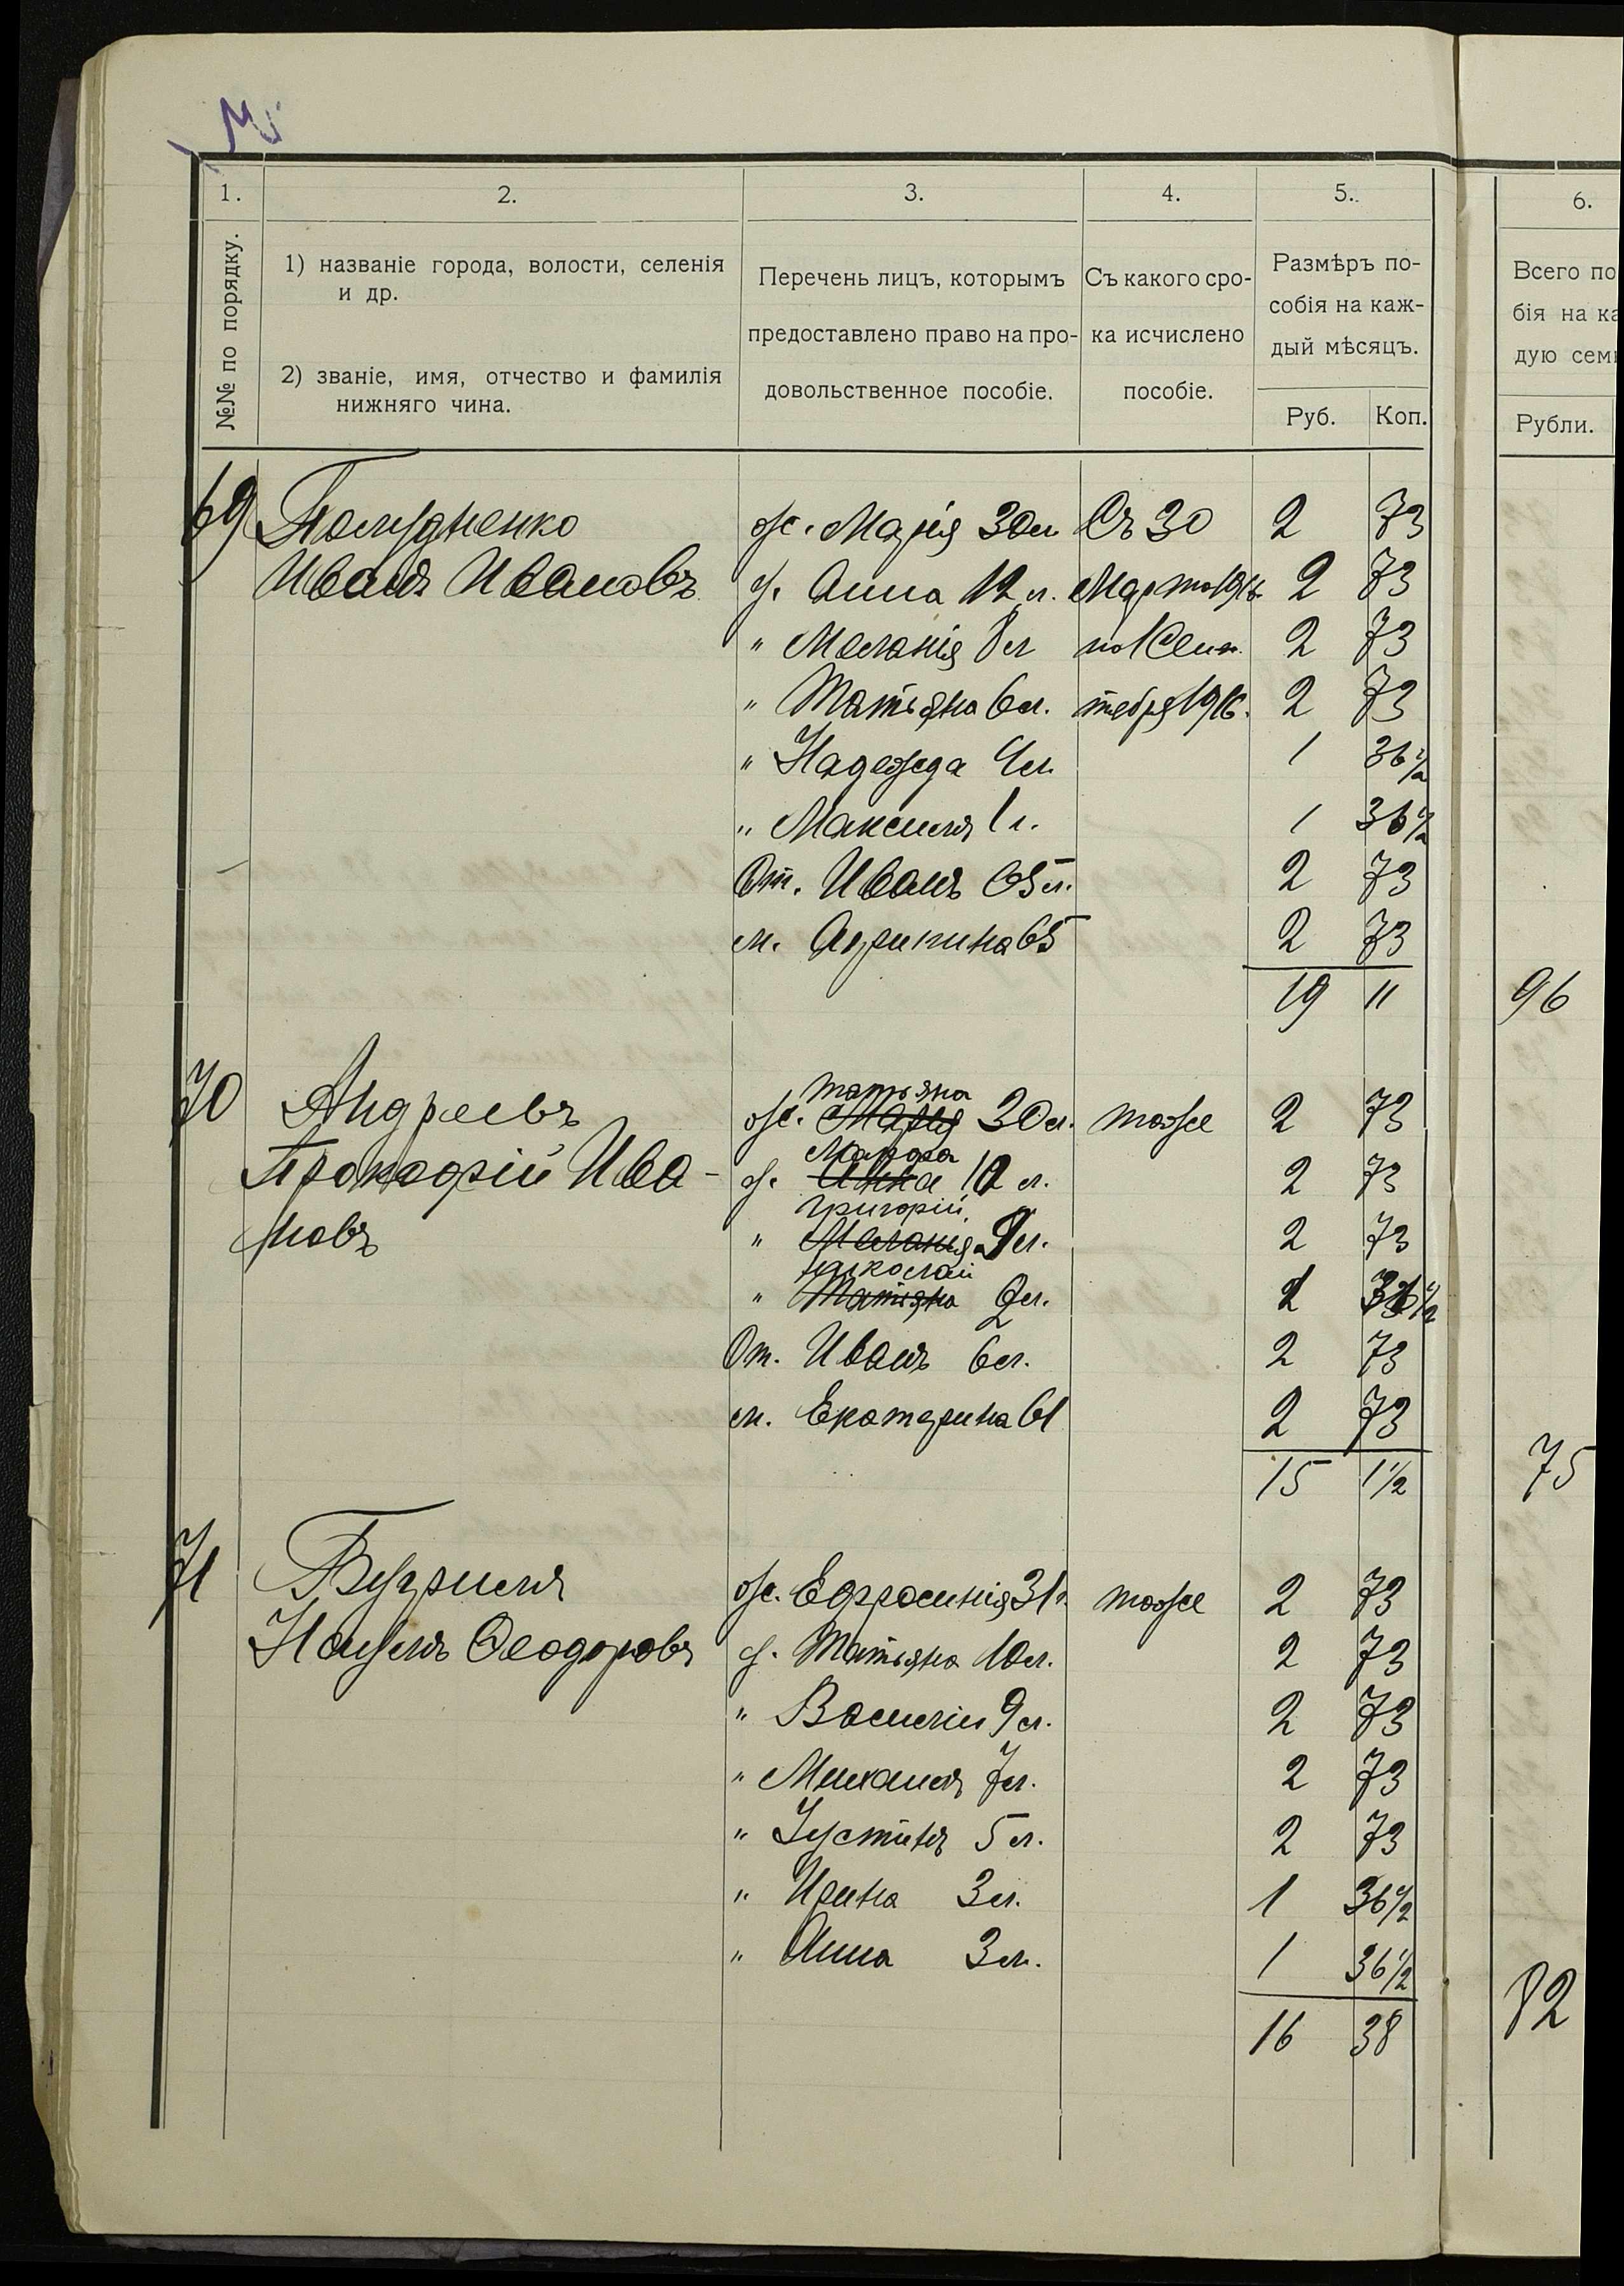 1. 2. 3. 4. 5. 6.
№№ по порядку.
1) названіе города, волости, селенія
и др.
2) званіе, имя, отчество и фамилія
нижняго чина.
Перечень лицъ, которымъ
предоставлено право на про-
довольственное пособіе.
Съ какого сро-
ка исчислено
пособіе.
Размѣръ по-
собія на каж-
дый мѣсяцъ.
Руб. Коп.
Всего по
бія на ка
дую сем
Рубли.
69 Полудненко ж. Марія 30 л. Съ 30 2 73
Иванъ Ивановъ д. Анна 12 л. Марта 1916 2 73
" Меланія 8 л по 1 Сен- 2 73
" Татьяна 6 л. тября 1916. 2 73
" Надежда 4 л. 1 36 1/2
" Максимъ 1 г. 1 36 1/2
От. Иванъ 65 л. 2 73
м. Агрипина 65 2 73
19 11 96
70 Андреевъ ж. Марія Татьяна 30 л. тоже 2 73
Прокофій Ива- д. Анна Марфа 12 л. 2 73
новъ " Меланія Григорій 9 л. 2 73
" Татьяна Николай 2 л. 1 36 1/2
От. Иванъ 6 л. 2 73
м. Екатерина 61 2 73
15 1 1/2 75
71 ж. Ефросинія 31 г. тоже 2 73
Наумъ Ѳеодоровъ д. Татьяна 10 л. 2 73
" Василій 9 л. 2 73
" Михаилъ 7 л. 2 73
" Іустинъ 5 л. 2 73
" Ирина 3 л. 1 36 1/2
" Анна 3 м. 1 36 1/2
16 38 82